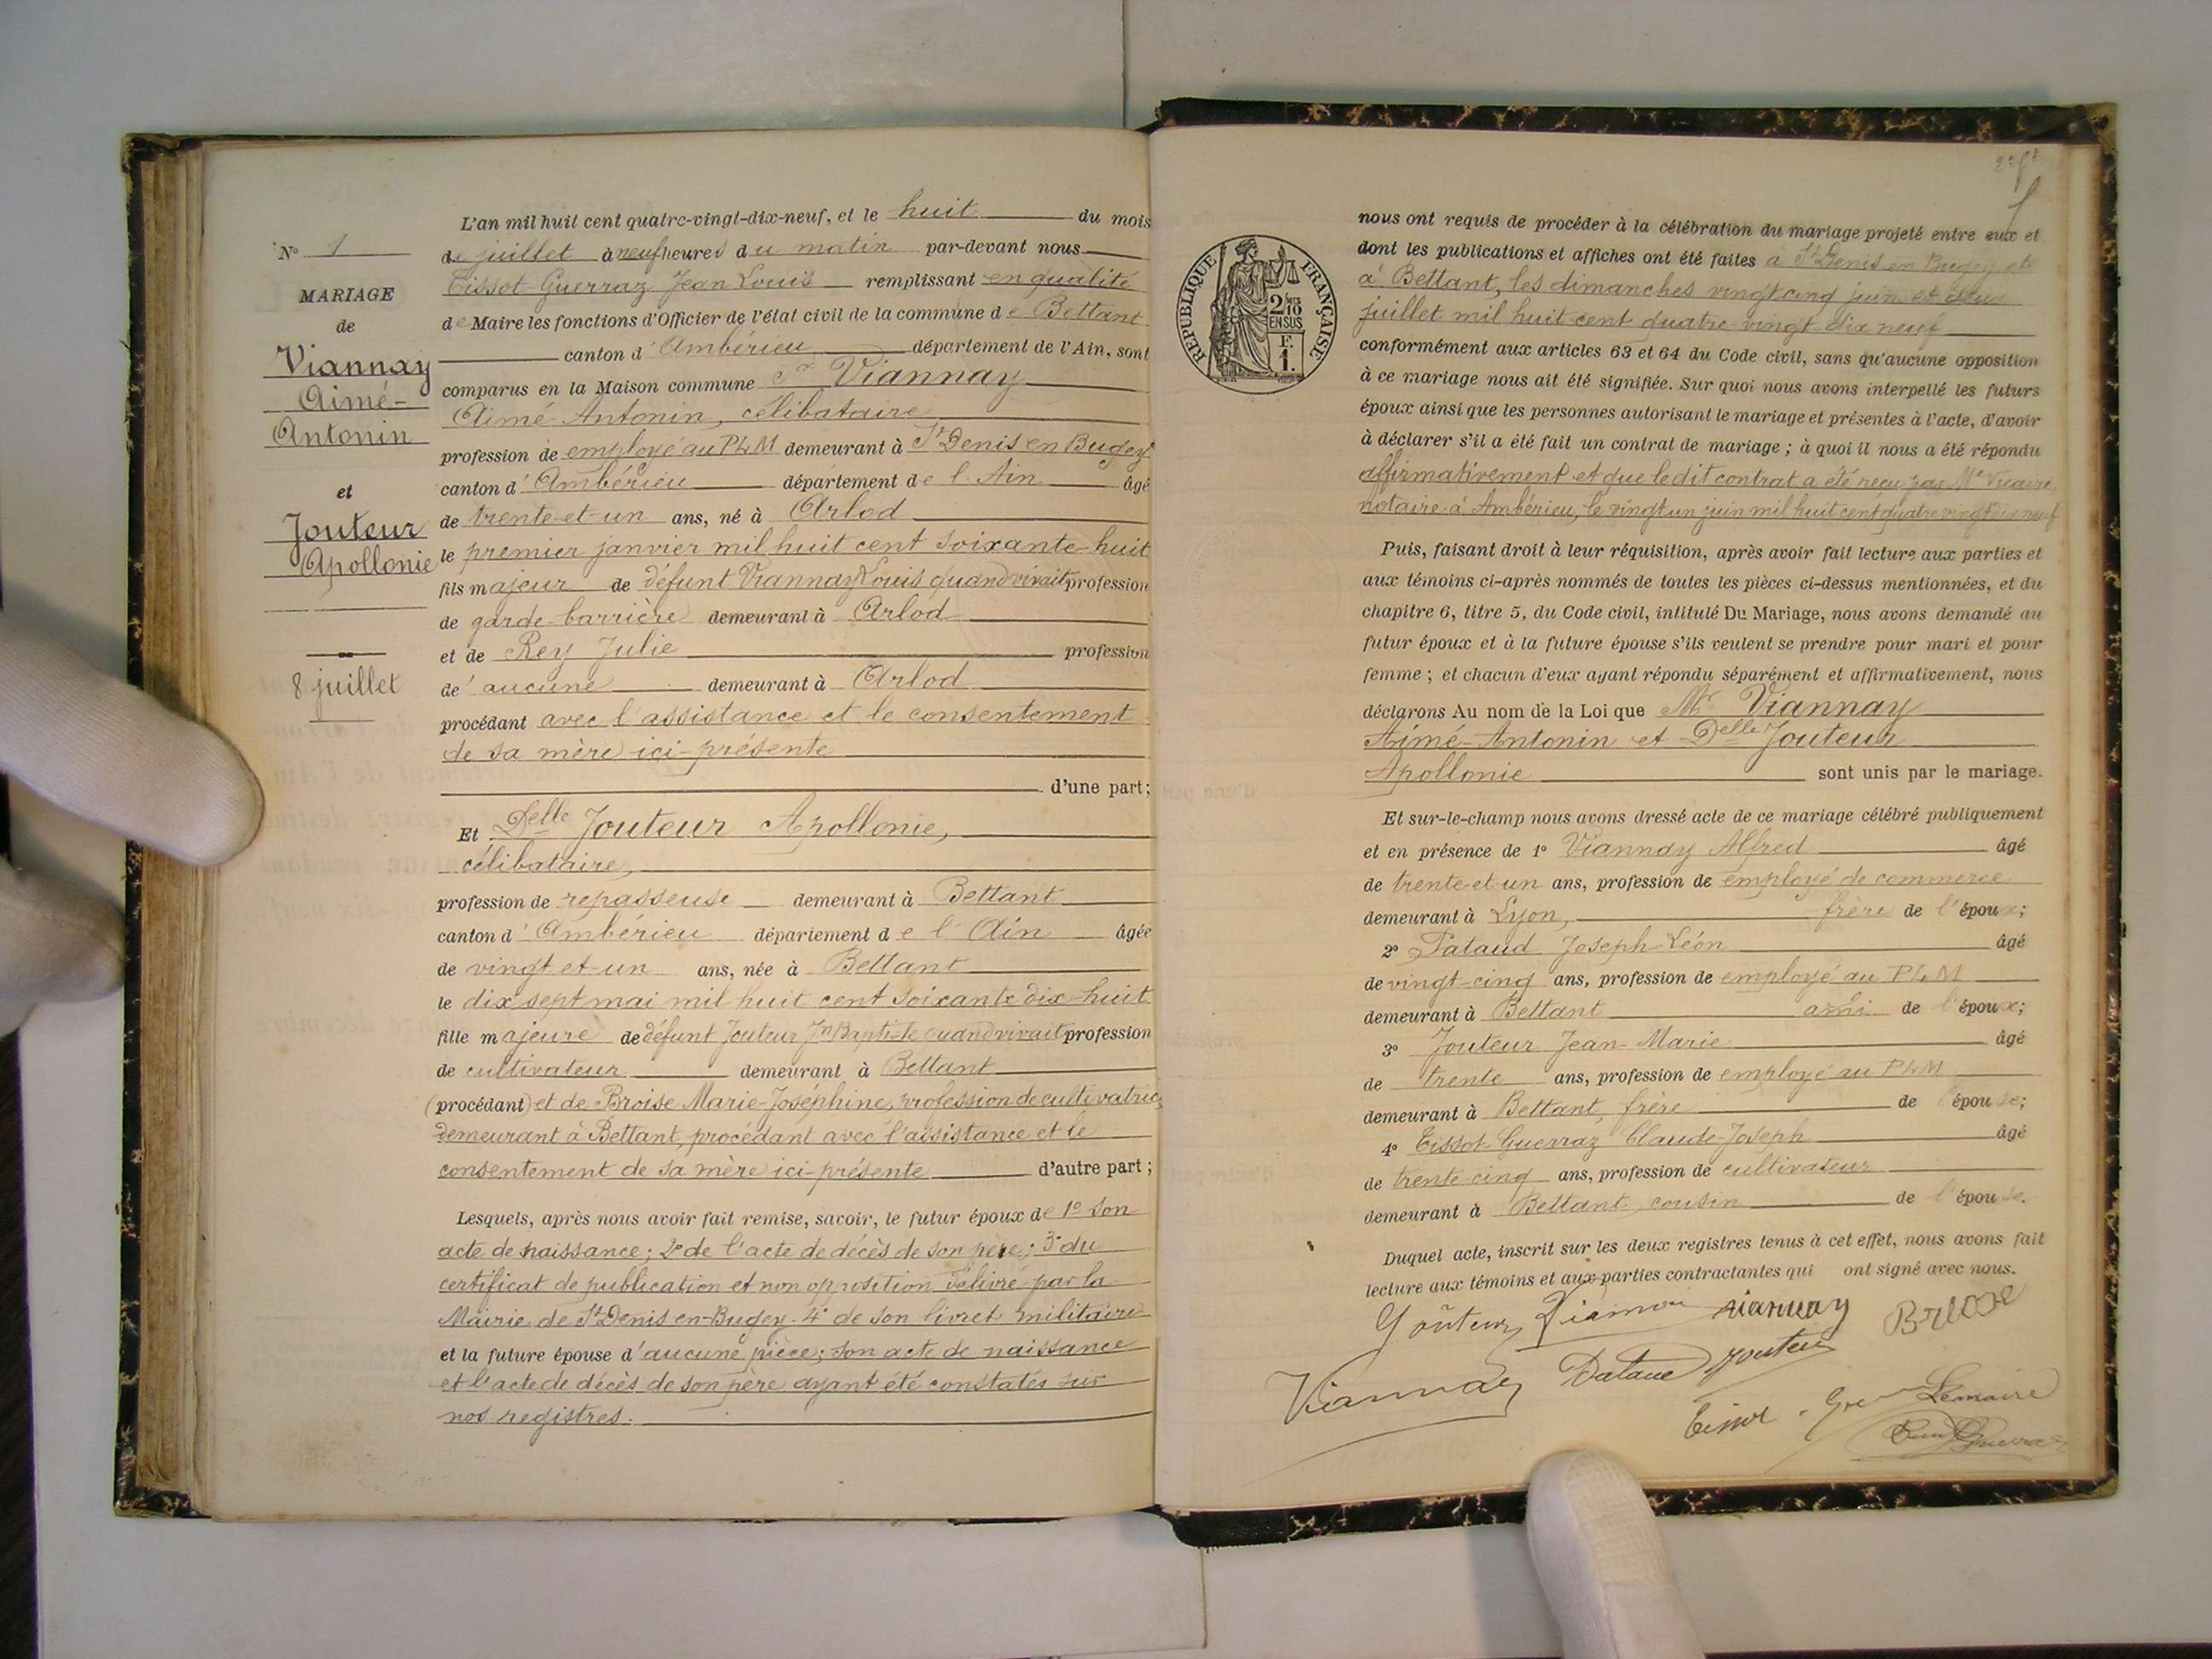 N° 1
MARIAGE
de
Viannay
Aimé-
Antonin
et
Jouteur
Apollonie
8 juillet
L'an mil huit cent quatre-vingt-dix-neuf, et le huit du mois
de juillet à neuf heures du matin par-devant nous
Tissot-Guerraz Jean Louis remplissant en qualité
de Maire les fonctions d'Officier de l'état civil de la commune de Bettant
canton d'Ambérieu département de l'Ain, sont
comparus en la Maison commune Sr Viannay
Aimé-Antonin, célibataire
profession de employé au PLM demeurant à St Denis en Bugey
canton d'Ambérieu département de l'Ain âgé
de trente-et-un ans, né à Arlod
le premier janvier mil huit cent soixante-huit
fils majeur de défunt Viannay Louis quand vivait profession
de garde-barrière demeurant à Arlod
et de Rey Julie profession
de aucune demeurant à Arlod
procédant avec l'assistance et le consentement
de sa mère ici-présente
d'une part;
Et Delle Jouteur Apollonie,
célibataire,
profession de repasseuse demeurant à Bettant
canton d'Ambérieu département de l'Ain âgée
de vingt-et-un ans, née à Bettant
le dix sept mai mil huit cent soixante dix-huit
fille majeure de défunt Jouteur Jn Baptiste quand vivait profession
de cultivateur demeurant à Bettant
(procédant) et de Broise Marie-Joséphine, profession de cultivatrice
demeurant à Bettant, procédant avec l'assistance et le
consentement de sa mère ici-présente d'autre part;
Lesquels, après nous avoir fait remise, savoir, le futur époux de 1° son
acte de naissance; 2° de l'acte de décès de son père; 3° du
certificat de publication et non opposition délivré par la
Mairie de St Denis-en-Bugey. 4° de son livret militaire
et la future épouse d'aucune pièce; son acte de naissance
et l'acte de décès de son père ayant été constatés sur
nos registres.
RÉPUBLIQUE FRANÇAISE
2/10
EN SUS
F.
1.
nous ont requis de procéder à la célébration du mariage projeté entre eux et
dont les publications et affiches ont été faites à St Denis en Bugey et
à Bettant, les dimanches vingt cinq juin et deux
juillet mil huit cent quatre-vingt dix neuf
conformément aux articles 63 et 64 du Code civil, sans qu'aucune opposition
à ce mariage nous ait été signifiée. Sur quoi nous avons interpellé les futurs
époux ainsi que les personnes autorisant le mariage et présentes à l'acte, d'avoir
à déclarer s'il a été fait un contrat de mariage; à quoi il nous a été répondu
affirmativement et que le dit contrat a été reçu par Me Vicaire,
notaire à Ambérieu, le vingt un juin mil huit cent quatre vingt dix neuf
Puis, faisant droit à leur réquisition, après avoir fait lecture aux parties et
aux témoins ci-après nommés de toutes les pièces ci-dessus mentionnées, et du
chapitre 6, titre 5, du Code civil, intitulé Du Mariage, nous avons demandé au
futur époux et à la future épouse s'ils veulent se prendre pour mari et pour
femme; et chacun d'eux ayant répondu séparément et affirmativement, nous
déclarons Au nom de la Loi que Mr Viannay
Aimé-Antonin et Delle Jouteur
Apollonie sont unis par le mariage.
Et sur-le-champ nous avons dressé acte de ce mariage célébré publiquement
et en présence de 1° Viannay Alfred âgé
de trente-et-un ans, profession de employé de commerce
demeurant à Lyon, frère de l'époux;
2° Pataud Joseph-Léon âgé
de vingt-cinq ans, profession de employé au PLM
demeurant à Bettant ami de l'époux;
3° Jouteur Jean-Marie âgé
de trente ans, profession de employé au PLM
demeurant à Bettant, frère de l'épouse;
4° Tissot-Guerraz Claude-Joseph âgé
de trente-cinq ans, profession de cultivateur
demeurant à Bettant, cousin de l'épouse.
Duquel acte, inscrit sur les deux registres tenus à cet effet, nous avons fait
lecture aux témoins et aux parties contractantes qui ont signé avec nous.
Jouteur viannay
Viannay Jouteur
Tissot Le maire